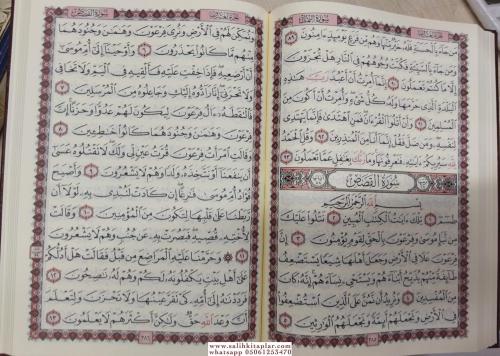 سورة النمل
مَن جَآءَ بِٱلْحَسَنَةِ فَلَهُۥ خَيْرٌ مِّنْهَا وَهُم مِّن فَزَعٍ يَوْمَئِذٍ ءَامِنُونَ ٨٩
وَمَن جَآءَ بِٱلسَّيِّئَةِ فَكُبَّتْ وُجُوهُهُمْ فِى ٱلنَّارِ هَلْ تُجْزَوْنَ
إِلَّا مَا كُنتُمْ تَعْمَلُونَ ٩٠ إِنَّمَآ أُمِرْتُ أَنْ أَعْبُدَ رَبَّ هَٰذِهِ
ٱلْبَلْدَةِ ٱلَّذِى حَرَّمَهَا وَلَهُۥ كُلُّ شَىْءٍ وَأُمِرْتُ أَنْ أَكُونَ مِنَ
ٱلْمُسْلِمِينَ ٩١ وَأَنْ أَتْلُوَا۟ ٱلْقُرْءَانَ فَمَنِ ٱهْتَدَىٰ فَإِنَّمَا يَهْتَدِى
لِنَفْسِهِۦ وَمَن ضَلَّ فَقُلْ إِنَّمَآ أَنَا۠ مِنَ ٱلْمُنذِرِينَ ٩٢ وَقُلِ ٱلْحَمْدُ
لِلَّهِ سَيُرِيكُمْ ءَايَٰتِهِۦ فَتَعْرِفُونَهَا وَمَا رَبُّكَ بِغَٰفِلٍ عَمَّا تَعْمَلُونَ ٩٣
سُورَةُ القَصَصِ
بِسْمِ ٱللَّهِ ٱلرَّحْمَٰنِ ٱلرَّحِيمِ
طسٓمٓ ١ تِلْكَ ءَايَٰتُ ٱلْكِتَٰبِ ٱلْمُبِينِ ٢ نَتْلُوا۟ عَلَيْكَ
مِن نَّبَإِ مُوسَىٰ وَفِرْعَوْنَ بِٱلْحَقِّ لِقَوْمٍ يُؤْمِنُونَ ٣ إِنَّ
فِرْعَوْنَ عَلَا فِى ٱلْأَرْضِ وَجَعَلَ أَهْلَهَا شِيَعًا يَسْتَضْعِفُ
طَآئِفَةً مِّنْهُمْ يُذَبِّحُ أَبْنَآءَهُمْ وَيَسْتَحْىِۦ نِسَآءَهُمْ إِنَّهُۥ كَانَ
مِنَ ٱلْمُفْسِدِينَ ٤ وَنُرِيدُ أَن نَّمُنَّ عَلَى ٱلَّذِينَ ٱسْتُضْعِفُوا۟
فِى ٱلْأَرْضِ وَنَجْعَلَهُمْ أَئِمَّةً وَنَجْعَلَهُمُ ٱلْوَٰرِثِينَ ٥
سورة القصص
وَنُمَكِّنَ لَهُمْ فِى ٱلْأَرْضِ وَنُرِىَ فِرْعَوْنَ وَهَٰمَٰنَ وَجُنُودَهُمَا
مِنْهُم مَّا كَانُوا۟ يَحْذَرُونَ ٦ وَأَوْحَيْنَآ إِلَىٰٓ أُمِّ مُوسَىٰٓ
أَنْ أَرْضِعِيهِ فَإِذَا خِفْتِ عَلَيْهِ فَأَلْقِيهِ فِى ٱلْيَمِّ وَلَا تَخَافِى
وَلَا تَحْزَنِىٓ إِنَّا رَآدُّوهُ إِلَيْكِ وَجَاعِلُوهُ مِنَ ٱلْمُرْسَلِينَ ٧
فَٱلْتَقَطَهُۥٓ ءَالُ فِرْعَوْنَ لِيَكُونَ لَهُمْ عَدُوًّا وَحَزَنًا إِنَّ
فِرْعَوْنَ وَهَٰمَٰنَ وَجُنُودَهُمَا كَانُوا۟ خَٰطِـِٔينَ ٨
وَقَالَتِ ٱمْرَأَتُ فِرْعَوْنَ قُرَّتُ عَيْنٍ لِّى وَلَكَ لَا تَقْتُلُوهُ عَسَىٰٓ
أَن يَنفَعَنَآ أَوْ نَتَّخِذَهُۥ وَلَدًا وَهُمْ لَا يَشْعُرُونَ ٩ وَأَصْبَحَ
فُؤَادُ أُمِّ مُوسَىٰ فَٰرِغًا إِن كَادَتْ لَتُبْدِى بِهِۦ لَوْلَآ أَن
رَّبَطْنَا عَلَىٰ قَلْبِهَا لِتَكُونَ مِنَ ٱلْمُؤْمِنِينَ ١٠ وَقَالَتْ
لِأُخْتِهِۦ قُصِّيهِ فَبَصُرَتْ بِهِۦ عَن جُنُبٍ وَهُمْ لَا يَشْعُرُونَ
١١ ۞ وَحَرَّمْنَا عَلَيْهِ ٱلْمَرَاضِعَ مِن قَبْلُ فَقَالَتْ هَلْ أَدُلُّكُمْ
عَلَىٰٓ أَهْلِ بَيْتٍ يَكْفُلُونَهُۥ لَكُمْ وَهُمْ لَهُۥ نَٰصِحُونَ ١٢
فَرَدَدْنَٰهُ إِلَىٰٓ أُمِّهِۦ كَىْ تَقَرَّ عَيْنُهَا وَلَا تَحْزَنَ وَلِتَعْلَمَ
أَنَّ وَعْدَ ٱللَّهِ حَقٌّ وَلَٰكِنَّ أَكْثَرَهُمْ لَا يَعْلَمُونَ ١٣
٣٨٦
www.salihkitaplar.com
whatsapp 05061253470